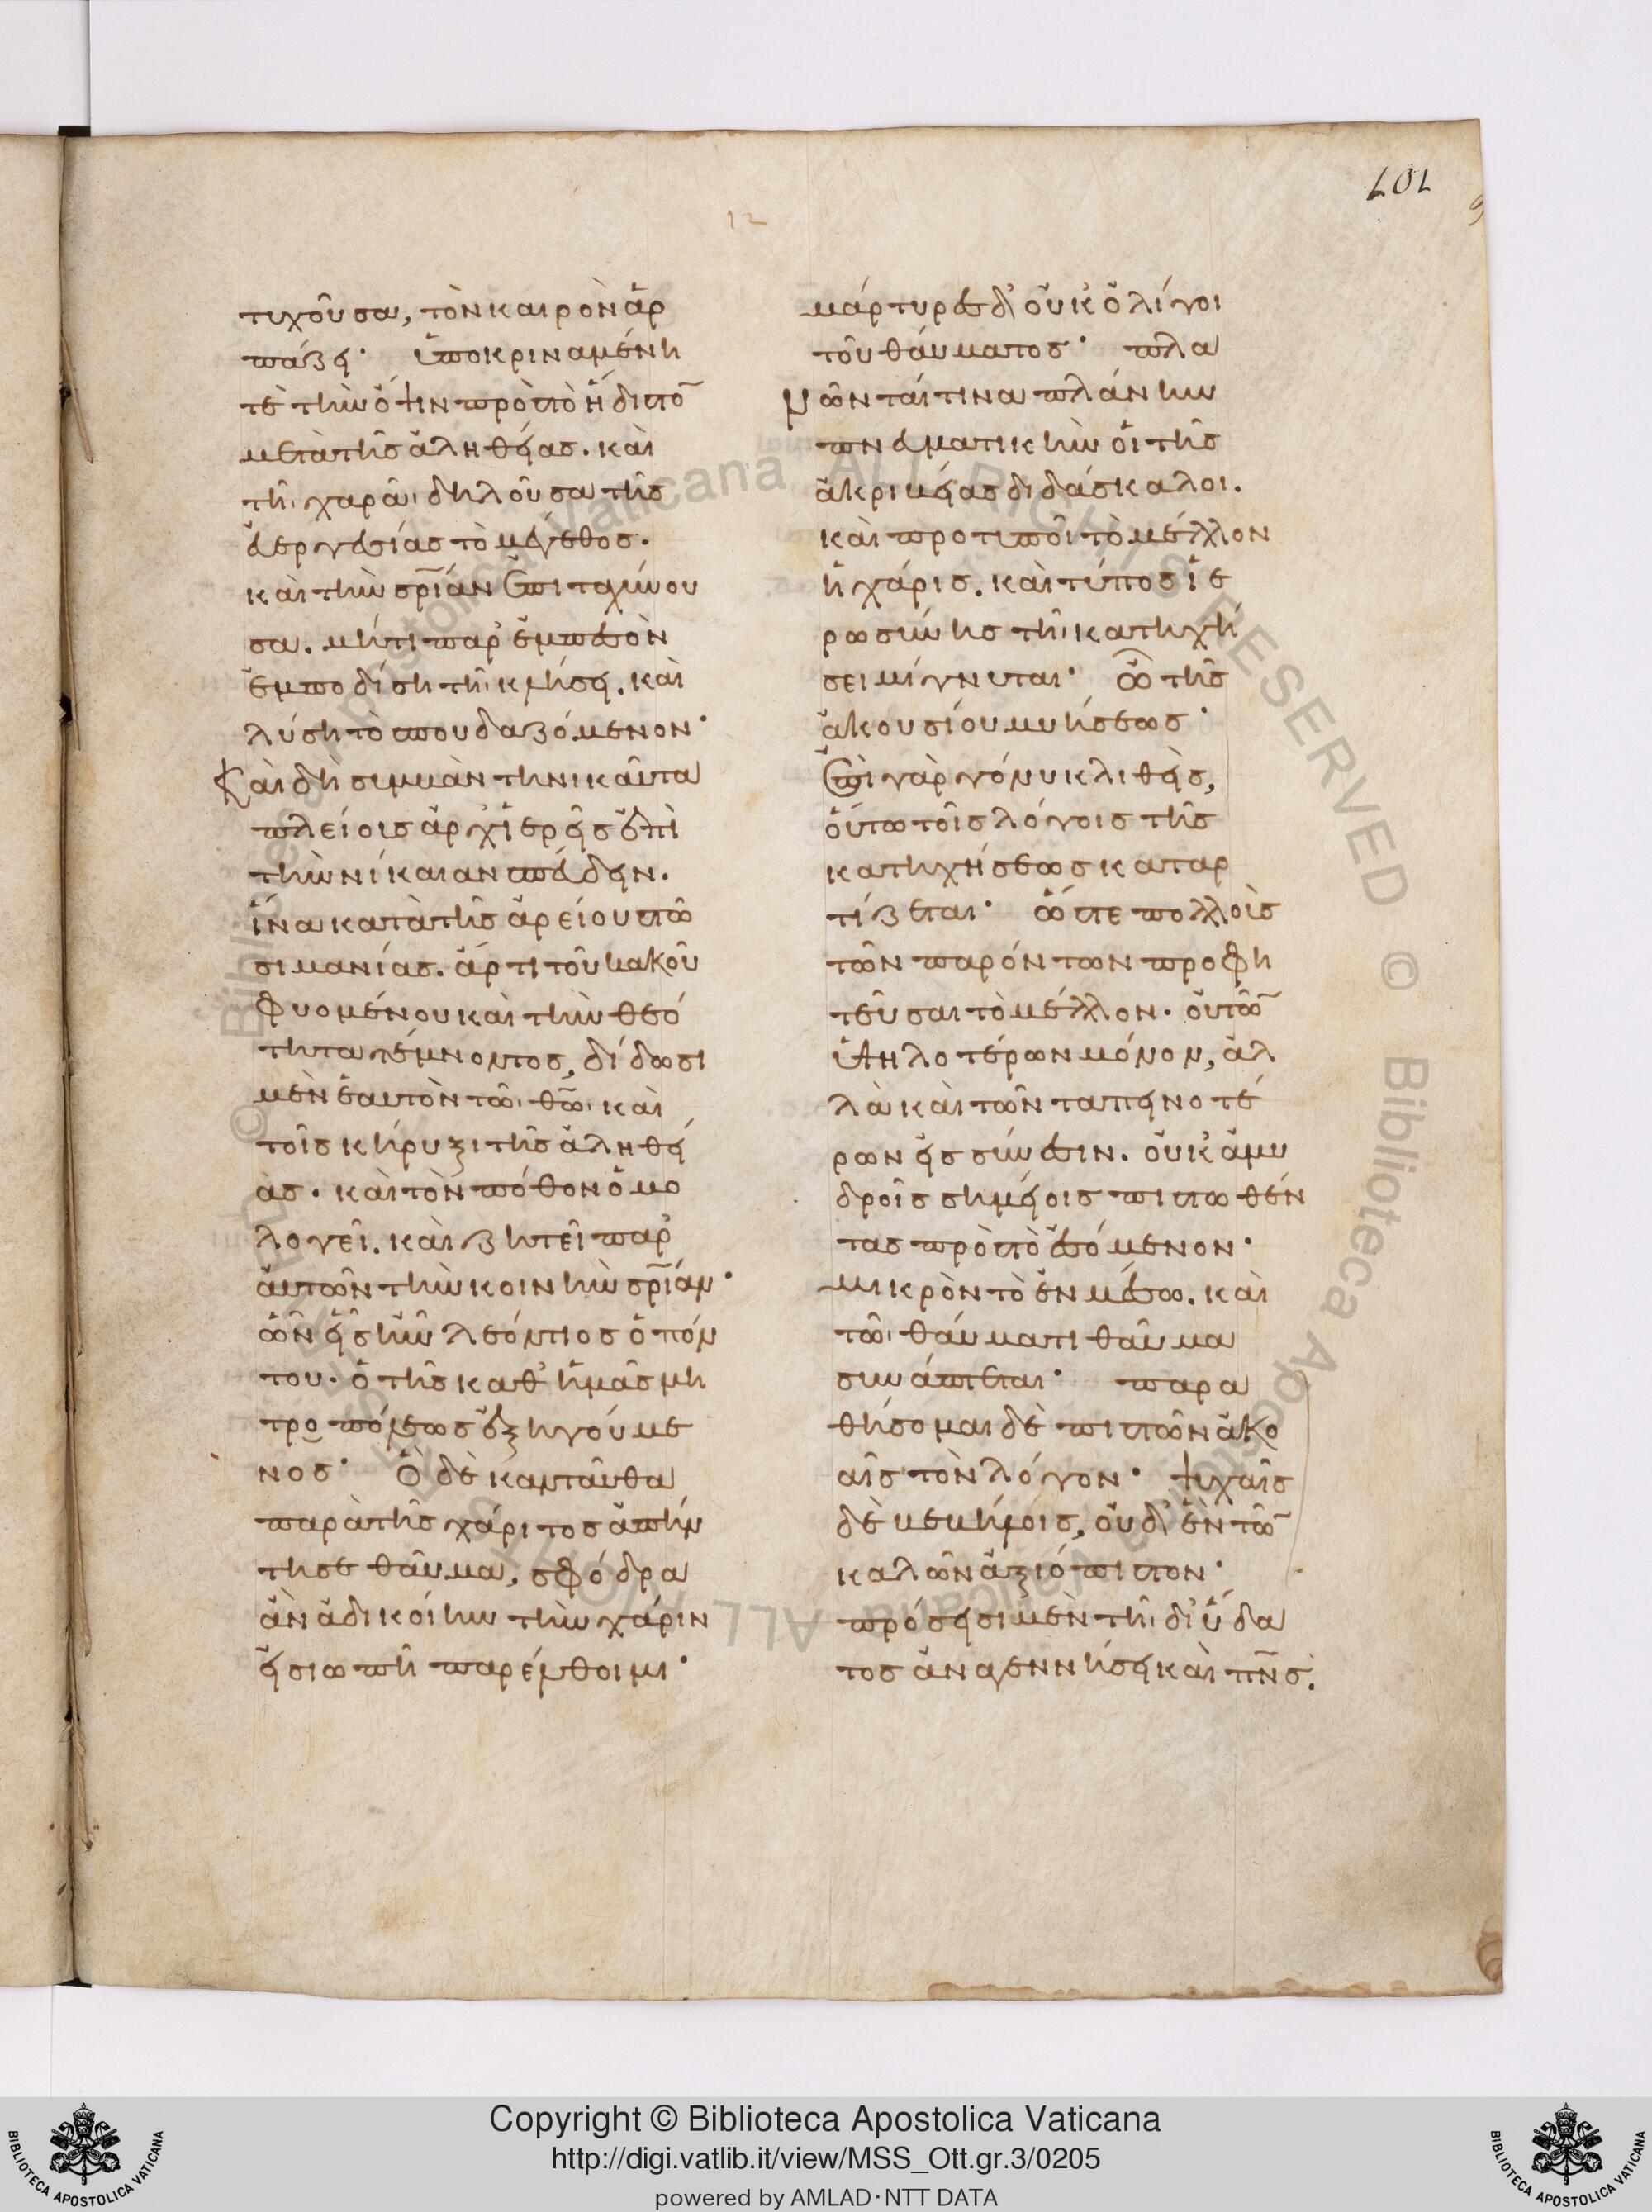 101
12
τυχοῦσα, τὸν καιρὸν ἁρ
πάζει· ὑποκριναμένη
τὲ τὴν ὄψιν πρὸς τὸ ἥδιστο̅
μετὰ τῆς ἀληθείας. καὶ
τῆι χαρᾶι δηλοῦσα τῆς
εὐεργεσίας τὸ μέγεθος.
καὶ τὴν σρ̅ίαν ἐπιταχύνου
σα. μήτι παρεμπεσὸν
ἐμποδίση τῆι κινήσει. καὶ
λύση τὸ σπουδαζόμενον·
Καὶ δὴ συμβὰν τηνικαῦτα
πλείοις ἀρχιερεῖς ἐπὶ
τὴν νίκαιαν σπεύδειν.
ἵνα κατὰ τῆς ἀρείου στῶ
σι μανίας. ἄρτι τοῦ κακοῦ
φυομένου καὶ τὴν θεό
τητα τέμνοντος, δίδωσι
μὲν ἑαυτὸν τῶι θ̅ῶι καὶ
τοῖς κήρυξι τῆς ἀληθεί
ας. καὶ τὸν πόθον ὁμο
λογεῖ. καὶ ζητεῖ παρ'
αὐτῶν τὴν κοινὴν σρ̅ίαν·
ὧν εἷς ἦν λεόντιος ὁ πάν
του. ὁ τῆς καθ' ἡμᾶς μη
τροπόλεως ἐξηγούμε
νος· Ὃ δὲ κἀνταῦθα
παρὰ τῆς χάριτος ἀπήν
τησε θαῦμα, σφόδρα
ἂν ἀδικοίην τὴν χάριν
εἰ σιωπῆ παρέλθοιμι·
μάρτυρες δ' οὐκ ὀλίγοι
τοῦ θαύματος· πλα
νῶνταί τινα πλάνην
πνευματικὴν οἱ τῆς
ἀκριβείας διδάσκαλοι.
καὶ προτυποῖ τὸ μέλλον
ἡ χάρις. καὶ τύπος ἱε
ρωσύνης τῆι κατηχή
σει μίγνυται· ὢ τῆς
ἀκουσίου μυήσεως·
ἐπὶ γὰρ γόνυ κλιθεὶς,
οὕτω τοῖς λόγοις τῆς
κατηχήσεως καταρ
τίζεται· ὥστε πολλοῖς
τῶν παρόντων προφη
τεῦσαι τὸ μέλλον. οὐ τῶ̅
ὑψηλοτέρων μόνον, ἀλ
λὰ καὶ τῶν ταπεινοτέ
ρων εἰς σύνεσιν. οὐκ ἀμυ
δροῖς σημείοις πιστωθέν
τας πρὸς τὸ ἐσόμενον·
μικρὸν τὸ ἐν μέσω. καὶ
τῶι θαύματι θαῦμα
συνάπτεται· παρα
θήσομαι δὲ πιστῶν ἀκο
αῖς τὸν λόγον· ψυχαῖς
δὲ βεβήλοις, οὐδ' ἓν τῶ̅
καλῶν ἀξιόπιστον·
πρόσεισι μὲν τῆι δι' ὕδα
τος ἀναγεννήσει καὶ πν̅σ.
Copyright © Biblioteca Apostolica Vaticana
http://digi.vatlib.it/view/MSS_Ott.gr.3/0205
powered by AMLAD·NTT DATA